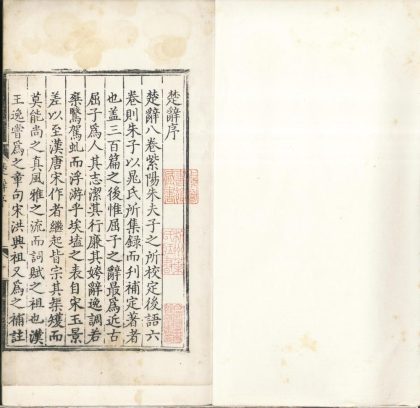 楚辭序
楚辭八卷紫陽朱夫子之所校定後語六
卷則朱子以晁氏所集錄而刊補定著者
也蓋三百篇之後惟屈子之辭最為近古
屈子為人其志潔其行廉其姱辭逸調若
乘鷖駕虬而浮游乎埃壒之表自宋玉景
差以至漢唐宋作者繼起皆宗其榘矱而
莫能尚之真風雅之流而詞賦之祖也漢
王逸嘗為之章句宋洪興祖又為之補註